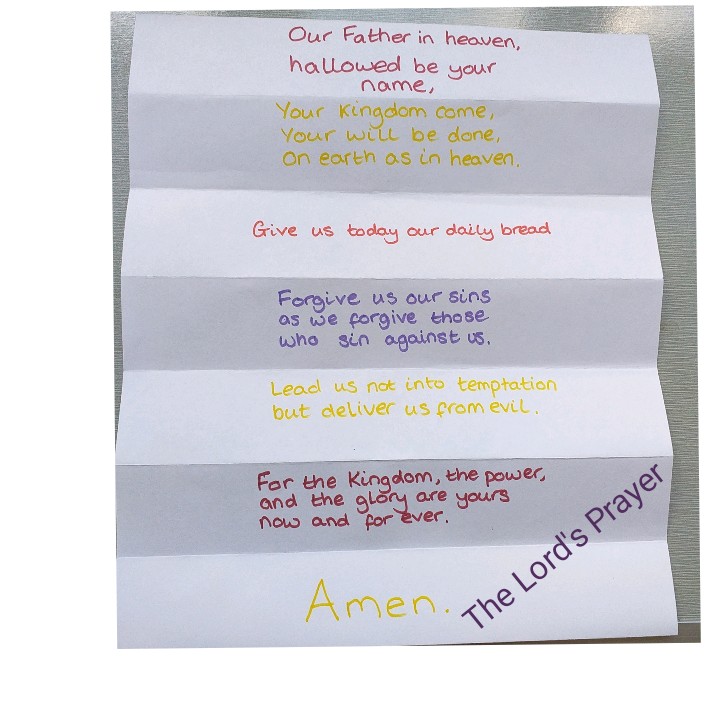 Our Father in heaven,
hallowed be your
name,
Your Kingdom come,
Your will be done,
On earth as in heaven.
Give us today our daily bread
Forgive us our sins
as we forgive those
who sin against us.
Lead us not into temptation
but deliver us from evil.
For the Kingdom, the power,
and the glory are yours
now and for ever.
Amen.
The Lord's Prayer